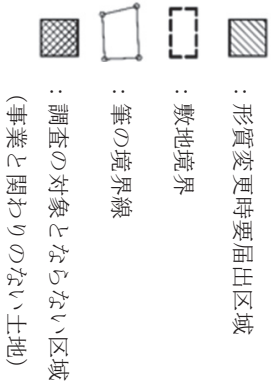 ：形質変更時要届出区域
：敷地境界
：筆の境界線
：調査の対象とならない区域
(事業と関わりのない土地)